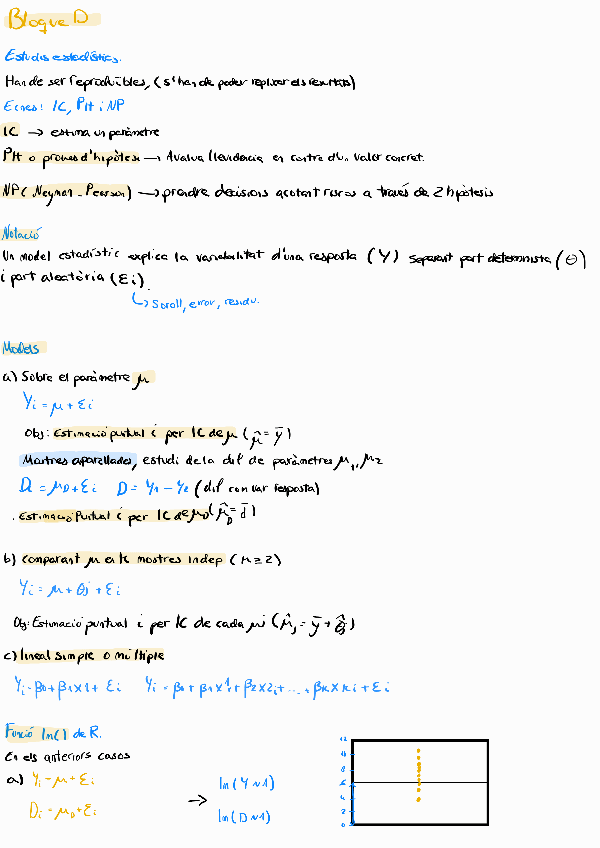 Bloque D
Estudis estadístics.
Han de ser reproduïbles, (s'han de poder replicar els resultats)
Eines: IC, PH i NP
IC → estima un paràmetre
PH o proves d'hipòtesi → Avalua l'evidència en contra d'un valor concret.
NP (Neyman-Pearson) → prendre decisions acotant riscos a través de 2 hipòtesis
Notació
Un model estadístic explica la variabilitat d'una resposta (Y) separant part determinista (Θ)
i part aleatòria (εi).
↳ Soroll, error, residu.
Models
a) Sobre el paràmetre μ
Yi = μ + εi
Obj: Estimació puntual i per IC de μ (μ̂ = ȳ)
Mostres aparellades, estudi de la dif de paràmetres μ1, μ2
Di = μD + εi D = Y1 - Y2 (dif com var resposta)
. Estimació Puntual i per IC de μD (μ̂D = d̄)
b) Comparant μ en K mostres indep (K ≥ 2)
Yi = μ + θj + εi
Obj: Estimació puntual i per IC de cada μj (μ̂j = ȳ + θ̂j)
c) lineal simple o múltiple
Yi = β0 + β1X1 + εi Yi = β0 + β1X1i + β2X2i + ... + βKXKi + εi
Funció lm() de R.
En els anteriors casos
a) Yi = μ + εi
Di = μD + εi
→
lm(Y~1)
lm(D~1)
12
8
6
4
2
0